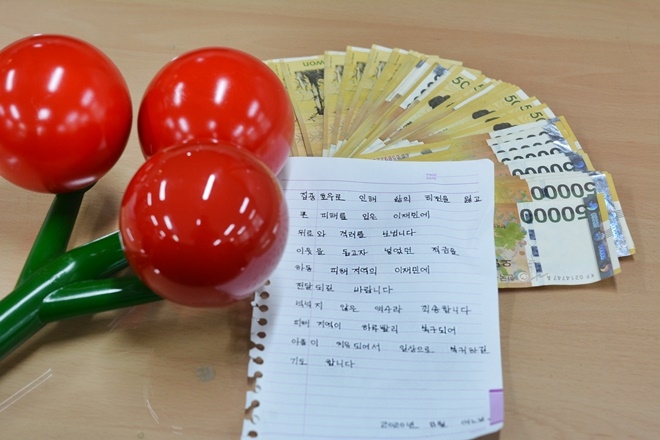 집중 호우로 인해 삶의 터전을 잃고
큰 피해를 입은 이재민에
위로와 격려를 보냅니다
이웃을 돕고자 넣었던 적금을
하동 피해 지역의 이재민에
전달되길 바랍니다
넉넉지 않은 액수라 죄송합니다
피해 지역이 하루빨리 복구되어
아픔이 치유되어서 일상으로 복귀하길
기도 합니다
2020년 8월
won
50
50
50
50000
50000